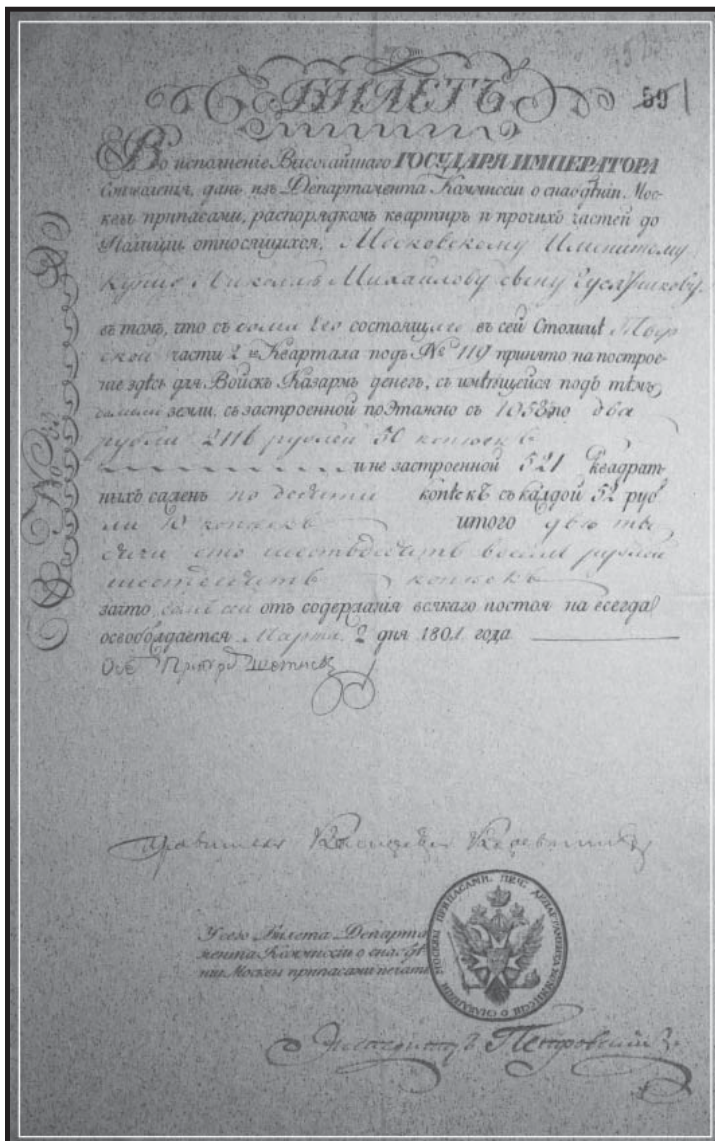 59
БИЛЕТЪ
Во исполненіе Высочайшаго ГОСУДАРЯ ИМПЕРАТОРА
Соизволенія, данъ изъ Департамента Коммиссіи о снабдѣніи Мос-
квы припасами, распорядкомъ квартиръ и прочихъ частей до
Полиціи относящихся, Московскому Именитому
Купцу Николаѣ Михайлову сыну Гусятникову
въ томъ, что съ дома его состоящаго въ сей Столицѣ Твер
ской части 2го Квартала подъ № 119 принято на построе-
ніе здѣсь для Войскъ Казармъ денегъ, съ имѣющейся подъ тѣмъ
домомъ земли, съ застроенной поэтажно съ 1058 по два
рубли 2116 рублей 50 копѣекъ
и не застроенной 521 квадрат-
ныхъ саженъ по десяти копѣекъ съ каждой 52 руб
ли 10 копѣекъ итого двѣ ты
сячи сто шестьдесятъ восемь рублей
шестьдесятъ копѣекъ
зачто домъ сей отъ содержанія всякаго постоя на всегда
освобождается Марта 2 дня 1801 года
Петровскій
У сего Билета Департа
мента Коммиссіи о снабдѣ
ніи Москвы припасами печать
ПЕЧ. ДЕПАРТАМЕНТА КОММИССІИ О СНАБДѢНІИ МОСКВЫ ПРИПАСАМИ